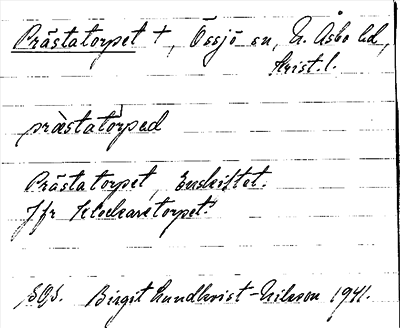 Prästatorpet †, Össjö sn, N. Åsbo hd,
Krist. l.
prästatorped
Prästatorpet, Enskiftet.
Jfr Klockaretorpet.
SOS. Birgit Lundkvist-Nilsson 1941.